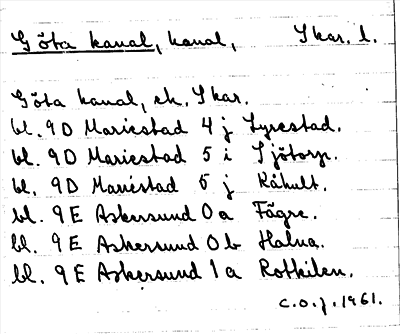 Göta kanal, kanal, Skar. l.
Göta kanal, ek. Skar.
bl. 9D Mariestad 4 j Lyrestad.
bl. 9D Mariestad 5 i Sjötorp.
bl. 9D Mariestad 5 j Råhult.
bl. 9E Askersund 0a Fägre.
bl. 9E Askersund 0b Halna.
bl. 9E Askersund 1a Rotkilen.
C.O.f. 1961.